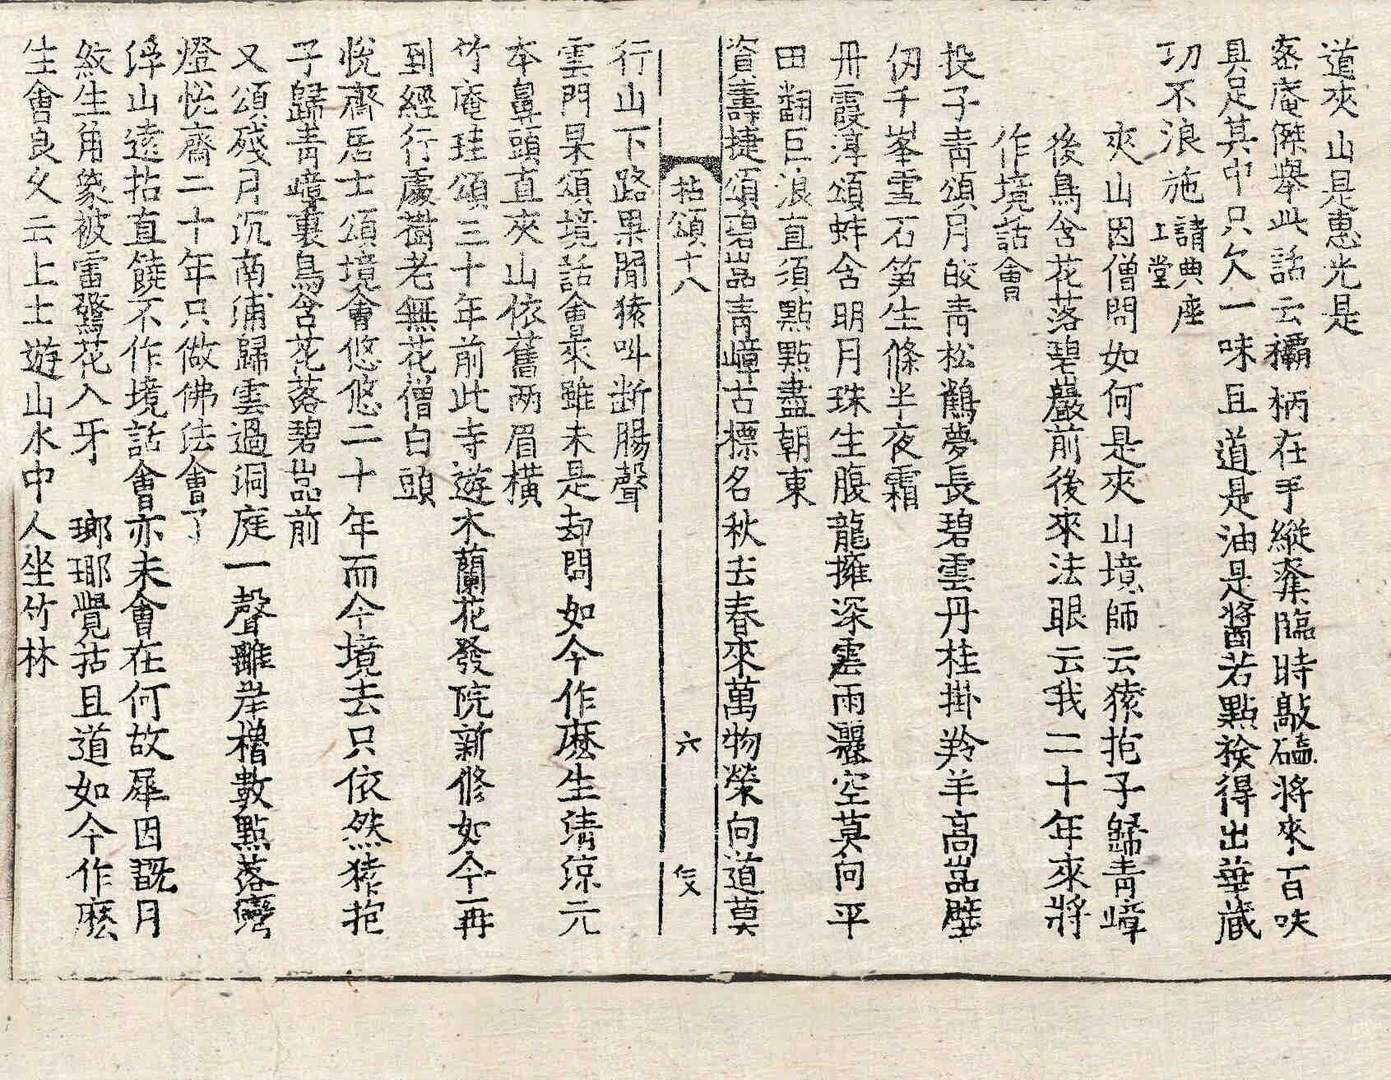 道夾山是惠光是
密庵傑擧此話云欛柄在手縱奪臨時敲磕將來百味
具足其中只欠一味且道是油是醬若點撿得出華藏
功不浪施請典座上堂
夾山因僧問如何是夾山境師云猿抱子歸靑嶂
後鳥含花落碧巖前後來法眼云我二十年來將
作境話會
投子靑頌月皎靑松鶴夢長碧雲丹桂掛羚羊高嵓壁
仞千峯雪石笋生條半夜霜
丹霞淳頌蚌含明月珠生腹龍擁深雲雨灑空莫向平
田翻巨浪直須點點盡朝東
資壽捷頌碧嵓靑嶂古標名秋去春來萬物榮向道莫
拈頌十八　六
行山下路果聞猿叫断腸聲
雲門杲頌境話會來雖未是却問如今作麽生淸凉元
本鼻頭直夾山依舊两眉横
竹庵珪頌三十年前此寺遊木蘭花發院新修如今再
到經行處樹老無花僧白頭
悅齋居士頌境會悠悠二十年而今境去只依然猿抱
子歸靑嶂裏鳥含花落碧嵓前
又頌殘月沉南浦歸雲過洞庭一聲離岸櫓數點落灣
燈悅齋二十年只做佛法會了
浮山遠拈直饒不作境話會亦未會在何故犀因翫月
紋生角象被雷驚花入牙　瑯瑘覺拈且道如今作麽
生會良久云上士遊山水中人坐竹林